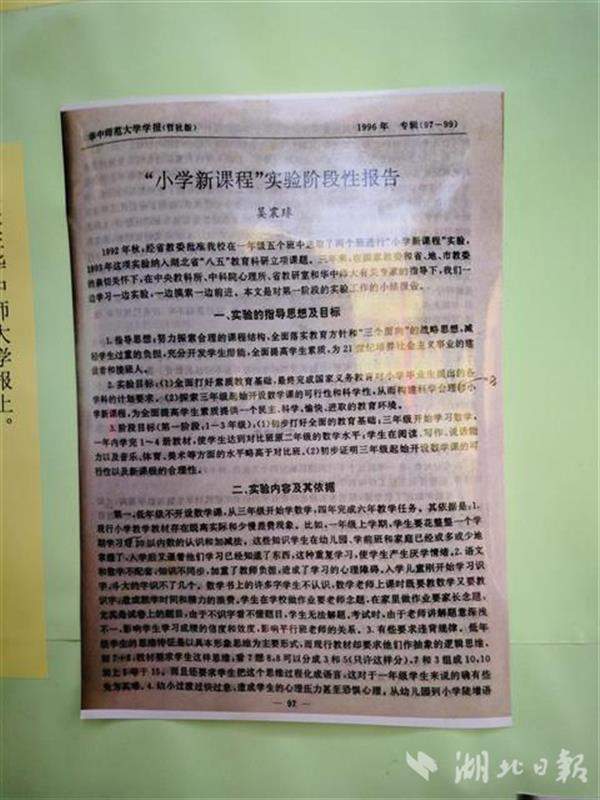 华中师范大学学报(哲社版)
1996年 专辑(97-99)
“小学新课程”实验阶段性报告
吴宸琫
1992年秋,经省教委批准我校在一年级五个班中选取了两个班进行“小学新课程”实验,
1993年这项实验纳入湖北省“八五”教育科研立项课题。三年来,在国家教委和省、地、市教委
的亲切关怀下,在中央教科所、中科院心理所、省教研室和华中师大有关专家的指导下,我们一
边学习一边实验,一边摸索一边前进。本文是对第一阶段的实验工作的小结报告。
一、实验的指导思想及目标
1.指导思想:努力探索合理的课程结构,全面落实教育方针和“三个面向”的战略思想,减
轻学生过重的负担,充分开发学生潜能,全面提高学生素质,为21世纪培养社会主义事业的建
设者和接班人。
2.实验目标:(1)全面打好素质教育基础,最终完成国家义务教育对小学毕业生提出的各
学科的计划要求。(2)探索三年级起始开设数学课的可行性和科学性,从而构建科学合理的小
学新课程,为全面提高学生素质提供一个民主、科学、愉快、进取的教育环境。
3.阶段目标(第一阶段,1-3年级):(1)初步打好全面的教育基础,三年级开始学习数学,
一年内学完1~4册教材,使学生达到对比班原二年级的数学水平;学生在阅读、写作、说话能
力以及音乐、体育、美术等方面的水平略高于对比班。(2)初步证明三年级起始开设数学课的可
行性以及新课程的合理性。
二、实验内容及其依据
第一,低年级不开设数学课,从三年级开始学数学,四年完成六年教学任务。其依据是:1.
现行小学教学教材存在脱离实际和少慢差费现象。比如,一年级上学期,学生要花整整一个学
期学习20以内数的认识和加减法,这些知识学生在幼儿园、学前班和家庭已经或多或少地
掌握了,入学后又逼着他们学习已经知道了东西,这种重复学习,使学生产生厌学情绪。2.语文
和数学不配套,知识不同步,加重了教师负担,造成了学习的心理障碍。入学儿童刚开始学习识
字,斗大的字识不了几个。数学书上的许多字学生不认识,数学老师上课时既要教数学又要教
识字,造成教学时间和精力的浪费。学生在学校做作业要老师念题,在家里做作业要家长念题,
尤其是试卷上的题目,由于不识字看不懂题目,学生无法解题。考试时,由于老师讲解题意深浅
不一,影响学生学习成绩的信度和效度,影响平行班老师的关系。3.有些要求违背规律。低年
级学生的思维特征是以具体形象思维为主要形式,而现行教材却要求他们作抽象的逻辑思维。
如7+8,教材要求学生这样思维:看7想8,8可以分成3和5(只许这样分),7和3组成10,10
加上5等于15。而且还要求学生把这个思维过程化成语言,这对于一年级学生来说的确有些
勉为其难。4.幼小过渡过快过急,造成学生的心理压力甚至恐惧心理。从幼儿园到小学陡增语
— 97 —
华中师大学报上。
湖北日报